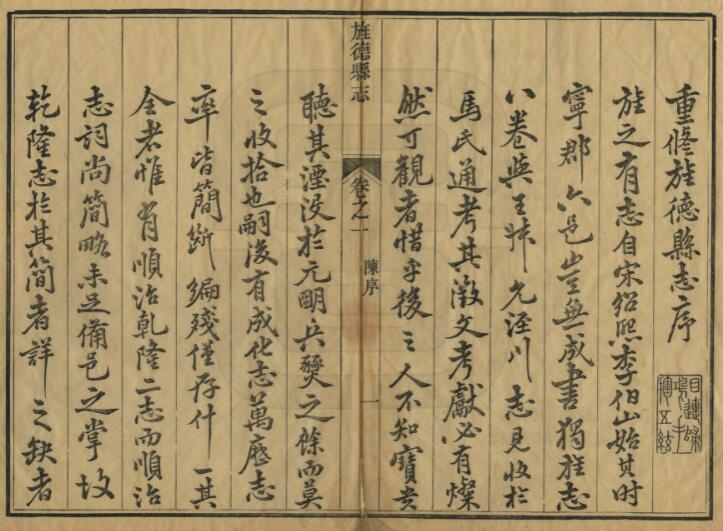 重修旌德縣志序
旌之有志自宋紹熙李伯山始其时
寧郡六邑豈無成書獨旌志
八卷與王栐允涇川志見收於
馬氏通考其徵文考獻必有燦
然可觀者惜乎後之人不知寶貴
旌德縣志
卷之一
陳序
一
聽其湮没於元明兵燹之餘而莫
之收拾也嗣後有成化志萬厯志
率皆簡斷編殘僅存什一其
全者惟有順治乾隆二志而順治
志詞尚簡略未足備邑之掌故
乾隆志於其簡者詳之缺者